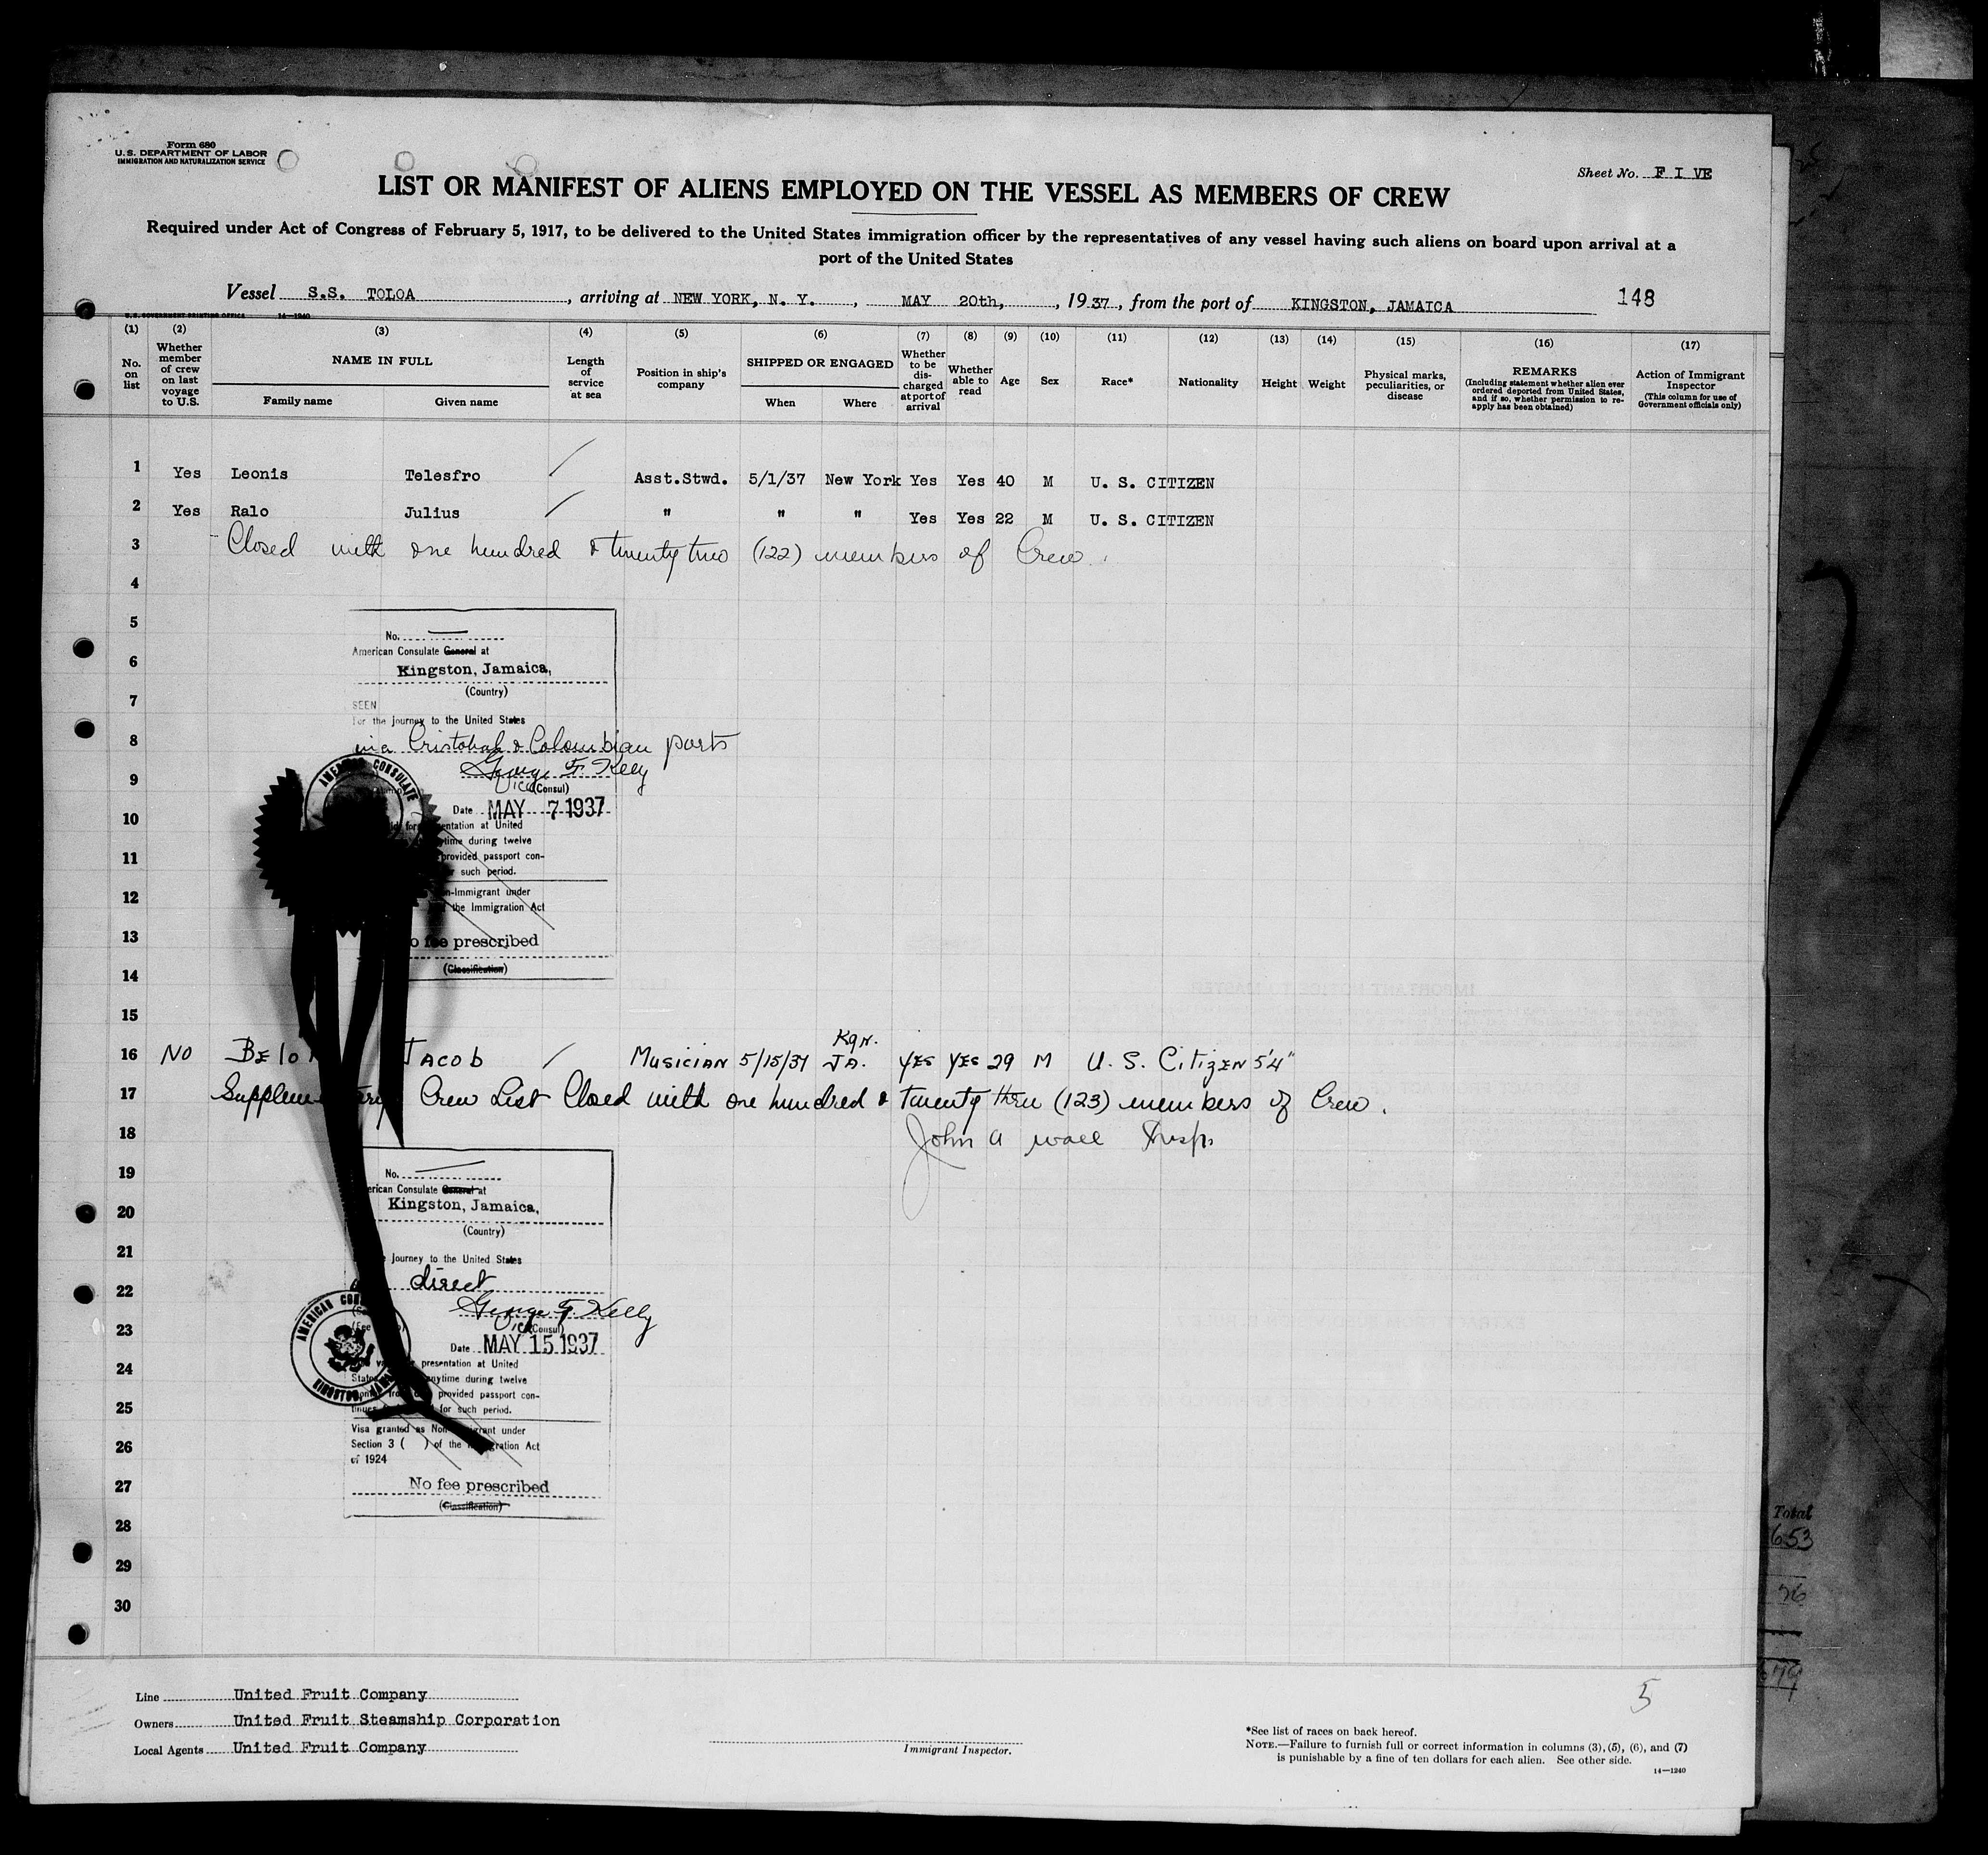 Form 680
U.S. DEPARTMENT OF LABOR
IMMIGRATION AND NATURALIZATION SERVICE
Sheet No. F I VE
LIST OR MANIFEST OF ALIENS EMPLOYED ON THE VESSEL AS MEMBERS OF CREW
Required under Act of Congress of February 5, 1917, to be delivered to the United States immigration officer by the representatives of any vessel having such aliens on board upon arrival at a
port of the United States
Vessel S.S. TOLOA, arriving at NEW YORK, N. Y., MAY 20th, 1937, from the port of KINGSTON, JAMAICA 148
U.S. GOVERNMENT PRINTING OFFICE 14—1240
(1) No. on list
(2) Whether member of crew on last voyage to U.S.
(3) NAME IN FULL Family name Given name
(4) Length of service at sea
(5) Position in ship's company
(6) SHIPPED OR ENGAGED When Where
(7) Whether to be discharged at port of arrival
(8) Whether able to read
(9) Age
(10) Sex
(11) Race*
(12) Nationality
(13) Height
(14) Weight
(15) Physical marks, peculiarities, or disease
(16) REMARKS (Including statement whether alien ever ordered deported from United States, and if so, whether permission to reapply has been obtained)
(17) Action of Immigrant Inspector (This column for use of Government officials only)
1 Yes Leonis Telesfro / Asst.Stwd. 5/1/37 New York Yes Yes 40 M U. S. CITIZEN
2 Yes Ralo Julius / " " " Yes Yes 22 M U. S. CITIZEN
3 Closed with one hundred & twenty two (122) members of Crew.
4
5
No.
6
American Consulate General at
Kingston, Jamaica,
(Country)
7
SEEN
For the journey to the United States
8
via Cristobal & Colombian ports
George F. Kelly
9
Vice (Consul)
AMERICAN CONSULATE
Date MAY 7 1937
10
presentation at United
time during twelve
11
provided passport con-
such period.
12
Non-Immigrant under
the Immigration Act
13
No fee prescribed
14
(Classification)
15
16 NO Jacob / Musician 5/15/37 Kgn. JA. YES YES 29 M U. S. Citizen 5'4"
17 Supplementary Crew List Closed with one hundred & twenty three (123) members of Crew.
18 John A Wall Insp.
19
No.
American Consulate General at
20
Kingston, Jamaica,
(Country)
21
journey to the United States
22
direct
George F. Kelly
23
Vice (Consul)
AMERICAN CON
KINGSTON, JAM
Date MAY 15 1937
24
presentation at United
States anytime during twelve
provided passport con-
25
tinues for such period.
Visa granted as Non-Immigrant under
26
Section 3 ( ) of the Immigration Act
of 1924
27
No fee prescribed
(Classification)
28
29
30
Total
653
76
Line United Fruit Company
Owners United Fruit Steamship Corporation
Local Agents United Fruit Company
Immigrant Inspector.
5
*See list of races on back hereof.
NOTE.—Failure to furnish full or correct information in columns (3), (5), (6), and (7)
is punishable by a fine of ten dollars for each alien. See other side.
14—1240